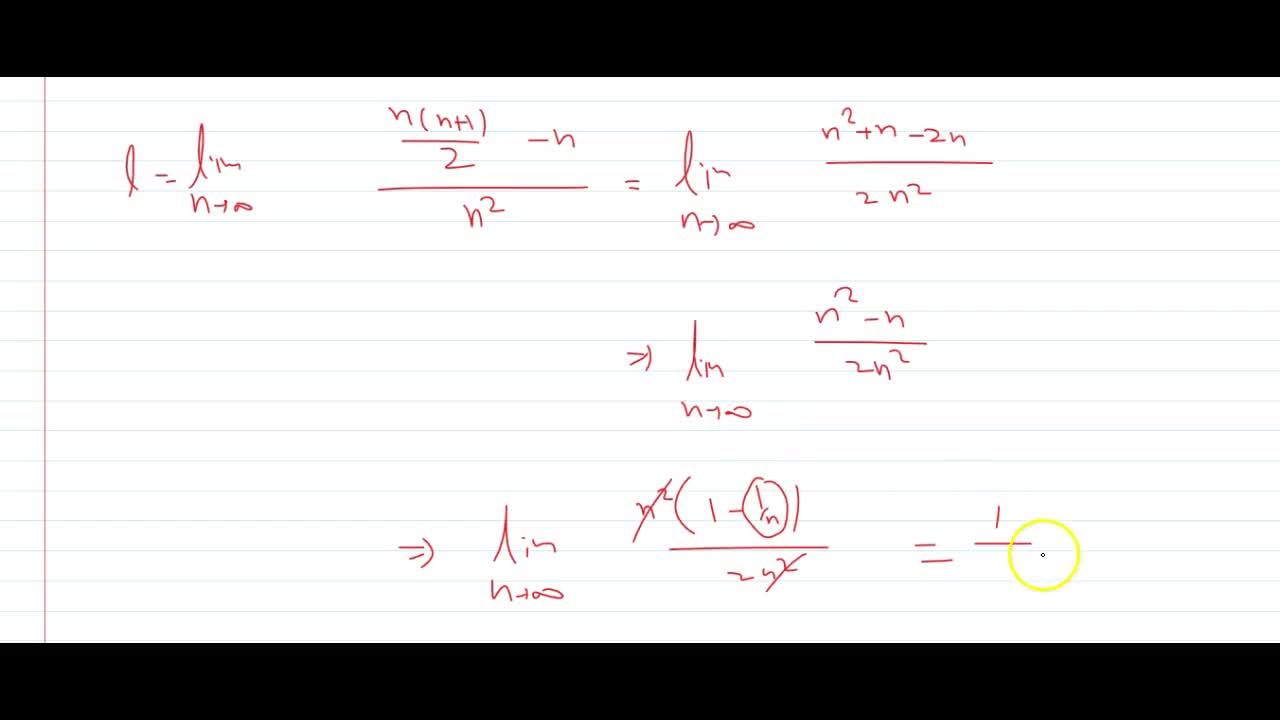 l = lim n→∞ (n(n+1)/2 - n)/n² = lim n→∞ (n²+n-2n)/2n²
⇒ lim n→∞ (n²-n)/2n²
⇒ lim n→∞ n²(1-1/n)/2n² = 1/